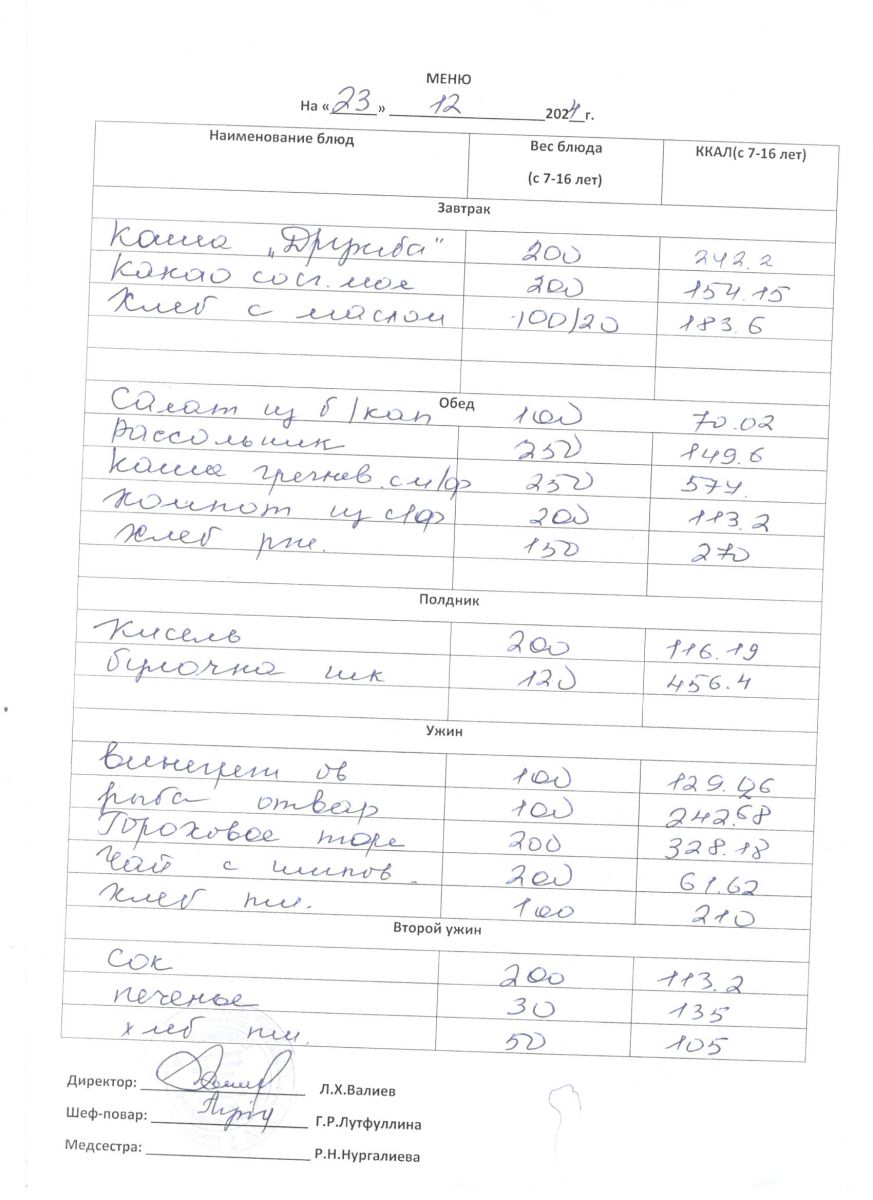 МЕНЮ
На «23» 12 2024 г.
Наименование блюд Вес блюда (с 7-16 лет) ККАЛ(с 7-16 лет)
Завтрак
Каша „Дружба" 200 242.2
Какао со сг. мол 200 154.15
Хлеб с маслом 100/20 183.6
Обед
Салат из б/кап 100 70.02
Рассольник 250 149.6
Каша гречнев. с м/ф 250 574.
Компот из с/ф 200 113.2
Хлеб рж. 150 270
Полдник
Кисель 200 116.19
булочка шк 120 456.4
Ужин
Винегрет ов 100 129.06
рыба отвар 100 242.68
Гороховое пюре 200 328.18
Чай с шипов. 200 61.62
Хлеб пш. 100 210
Второй ужин
Сок 200 113.2
печенье 30 135
хлеб пш. 50 105
Директор: Л.Х.Валиев
Шеф-повар: Г.Р.Лутфуллина
Медсестра: Р.Н.Нургалиева